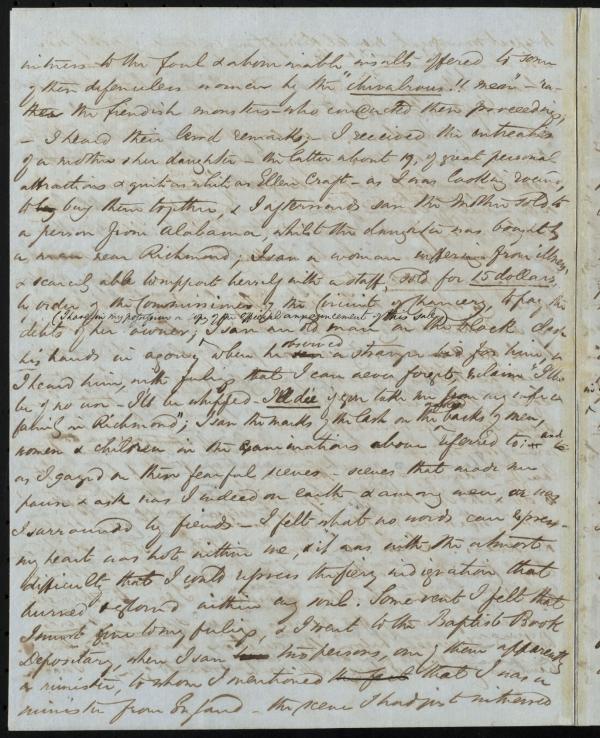 witness to the foul & abominable insults offered to some
of these defenceless women by the "chivalrous!! men" - ra-
ther the fiendish monsters - who conducted these proceedings;
- I heard their lewd remarks; - I received the entreaties
of a mother & her daughter - the latter about 19, of great personal
attractions & quite as white as Ellen Craft - as I was looking round,
to buy them together, & I afterwards saw the Mother sold to
a person from Alabama, whilst the daughter was bought by
a man near Richmond; I saw a woman suffering from illness
& scarcely able to support herself with a staff, sold for 15 dollars,
by order of the Commissioners of the Circuit of Chancery, to pay the
(I have in my possession a copy of the official announcement of this sale)
debts of her owner; I saw an old man on the block clasp
his hands in agony when he observed a stranger bid for him, &
I heard him, with feelings that I can never forget, exclaim "I'll
be of no use - I'll be whipped - I'll die if you take me from my wife &
family in Richmond"; I saw the marks of the lash on the backs of men,
women & children in the examinations above referred to; and
as I gazed on these fearful scenes - scenes that made me
pause & ask was I indeed on earth & among men, or was
I surrounded by fiends - I felt what no words can express -
my heart was hot within me, & it was with the utmost
difficulty that I could repress the fiery indignation that
burned & glowed within my soul. Some vent I felt that
I must give to my feelings, & I went to the Baptist Book
Depositary, where I saw two persons, one of them apparently
a minister, to whom I mentioned that I was a
minister from England - the scene I had just witnessed